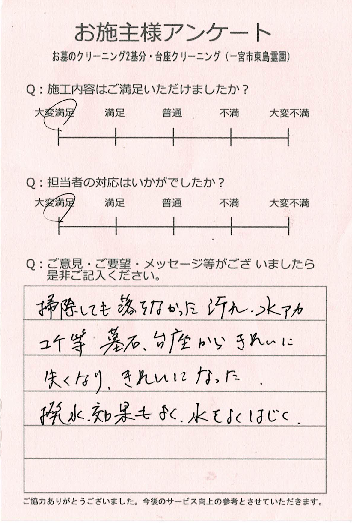 お施主様アンケート
お墓のクリーニング2基分・台座クリーニング（一宮市東島霊園）
Q：施工内容はご満足いただけましたか？
大変満足 満足 普通 不満 大変不満
Q：担当者の対応はいかがでしたか？
大変満足 満足 普通 不満 大変不満
Q：ご意見・ご要望・メッセージ等がございましたら
是非ご記入ください。
掃除しても落ちなかった汚れ、水アカ
コケ等 墓石、台座からきれいに
失くなり、きれいになった。
撥水効果もよく、水をよくはじく。
ご協力ありがとうございました。今後のサービス向上の参考とさせていただきます。